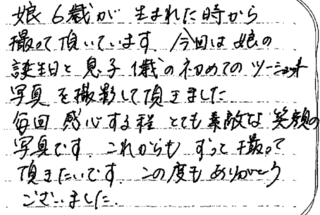 娘6歳が生まれた時から
撮って頂いています 今回は娘の
誕生日と息子1歳の初めてのツーショット
写真を撮影して頂きました
毎回感心する程とても素敵な笑顔の
写真です これからもずっと撮って
頂きたいです この度もありがとう
ございました。